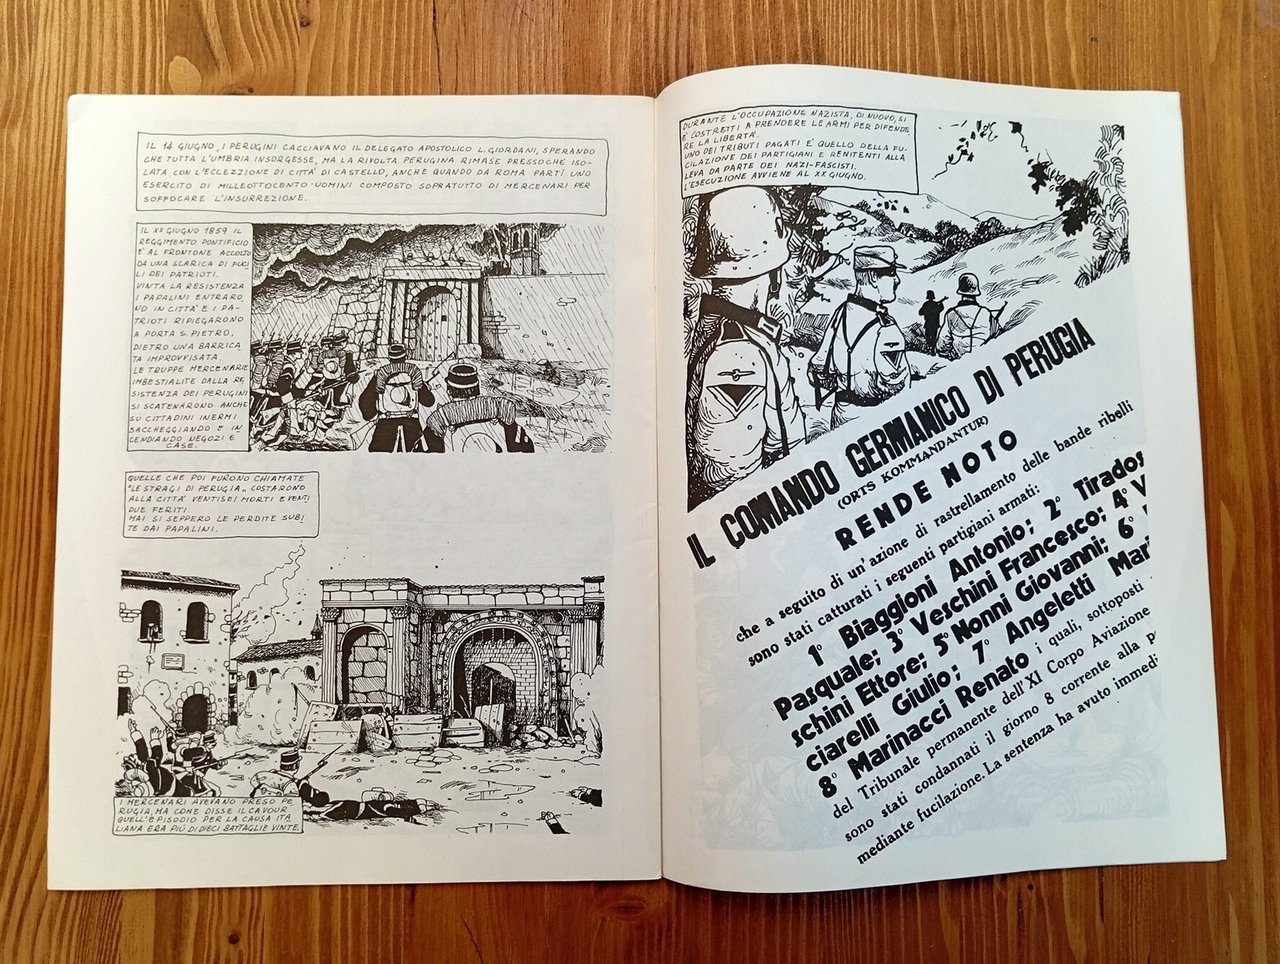 IL 14 GIUGNO, I PERUGINI CACCIAVANO IL DELEGATO APOSTOLICO L. GIORDANI, SPERANDO
CHE TUTTA L'UMBRIA INSORGESSE, MA LA RIVOLTA PERUGINA RIMASE PRESSOCHE ISO-
LATA, CON L'ECLEZZIONE DI CITTA' DI CASTELLO, ANCHE QUANDO DA ROMA PARTÌ UNO
ESERCITO DI MILLEOTTOCENTO UOMINI COMPOSTO SOPRATUTTO DI MERCENARI PER
SOFFOCARE L'INSURREZIONE.
IL XX GIUGNO 1859 IL
REGGIMENTO PONTIFICIO
E' AL FRONTONE ACCOLTO
DA UNA SCARICA DI FUCI
LI DEI PATRIOTI.
VINTA LA RESISTENZA
I PAPALINI ENTRARO
NO IN CITTA' E I PA-
TRIOTI RIPIEGARONO
A PORTA S. PIETRO,
DIETRO UNA BARRICA
TA IMPROVVISATA.
LE TRUPPE MERCENARIE
IMBESTIALITE DALLA RE
SISTENZA DEI PERUGINI
SI SCATENARONO ANCHE
SU CITTADINI INERMI
SACCHEGGIANDO E IN
CENDIANDO NEGOZI E
CASE.
QUELLE CHE POI FURONO CHIAMATE
"LE STRAGI DI PERUGIA" COSTARONO
ALLA CITTA' VENTISEI MORTI E VENTI
DUE FERITI.
MAI SI SEPPERO LE PERDITE SUBI
TE DAI PAPALINI.
I MERCENARI AVEVANO PRESO PE
RUGIA, MA COME DISSE IL CAVOUR
QUELL'EPISODIO PER LA CAUSA ITA
LIANA ERA PIÙ DI DIECI BATTAGLIE VINTE.
DURANTE L'OCCUPAZIONE NAZISTA, DI NUOVO, SI
E' COSTRETTI A PRENDERE LE ARMI PER DIFENDE
RE LA LIBERTA'.
UNO DEI TRIBUTI PAGATI E' QUELLO DELLA FU-
CILAZIONE DEI PARTIGIANI E RENITENTI ALLA
LEVA DA PARTE DEI NAZI-FASCISTI
L'ESECUZIONE AVVIENE AL XX GIUGNO.
IL COMANDO GERMANICO DI PERUGIA
(ORTS KOMMANDANTUR)
RENDE NOTO
che a seguito di un'azione di rastrellamento delle bande ribelli
sono stati catturati i seguenti partigiani armati:
1° Biaggioni Antonio; 2° Tirados
Pasquale; 3° Veschini Francesco; 4° V
schini Ettore; 5° Nonni Giovanni; 6°
ciarelli Giulio; 7° Angeletti Mari
8° Marinacci Renato i quali, sottoposti
del Tribunale permanente dell'XI Corpo Aviazione
sono stati condannati il giorno 8 corrente alla p
mediante fucilazione. La sentenza ha avuto immed